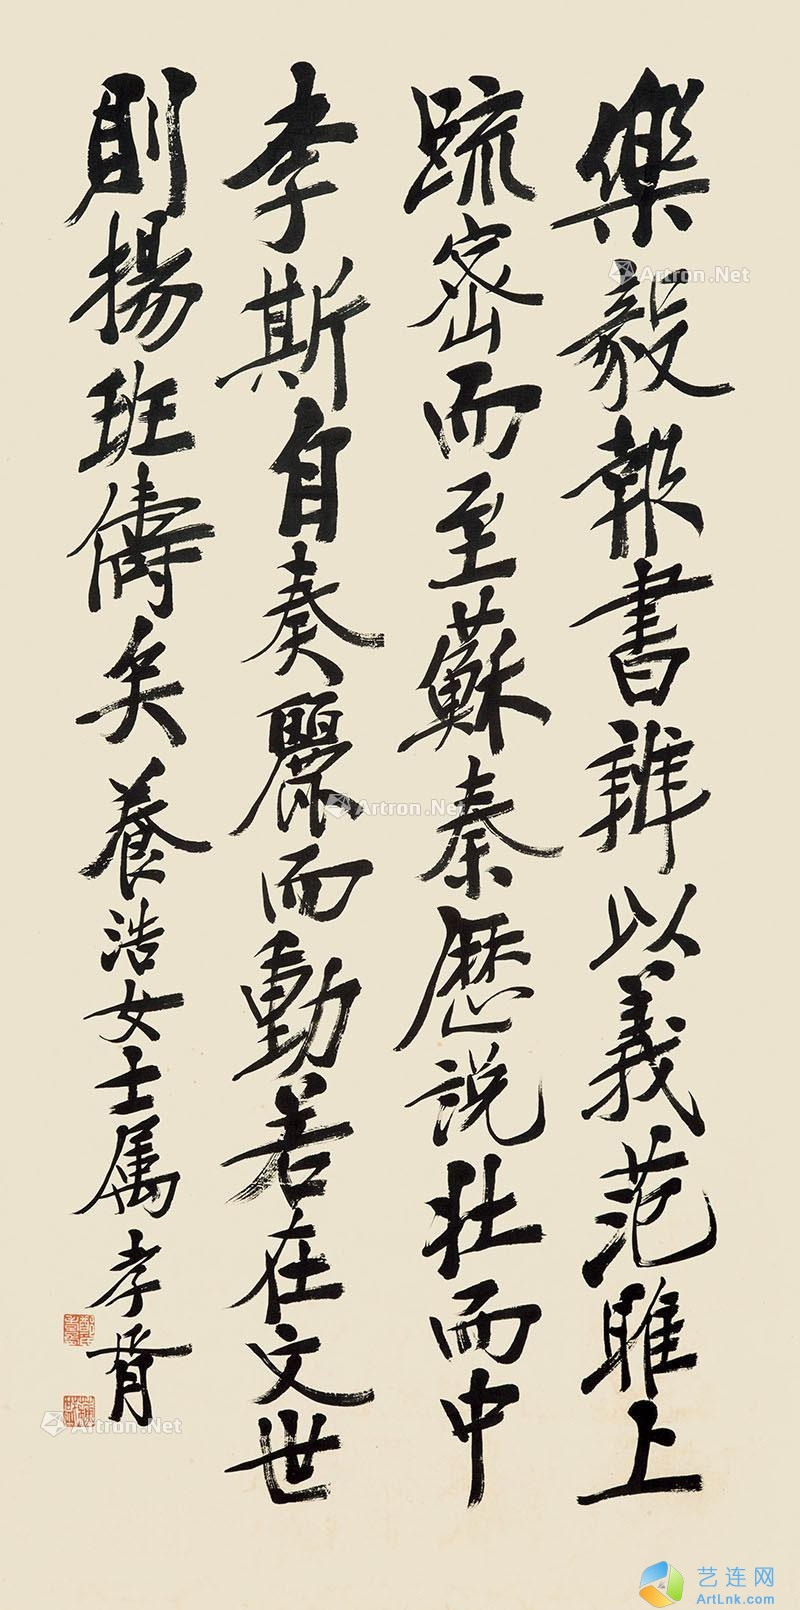 樂毅報書辨以義范雎上
疏密而至蘇秦歷説壯而中
李斯自奏麗而動若在文世
則揚班儔矣養浩女士属孝胥
Artron.Net
Artron.Net
Artron.Net
Artron.Net
艺连网
ArtLnk.com